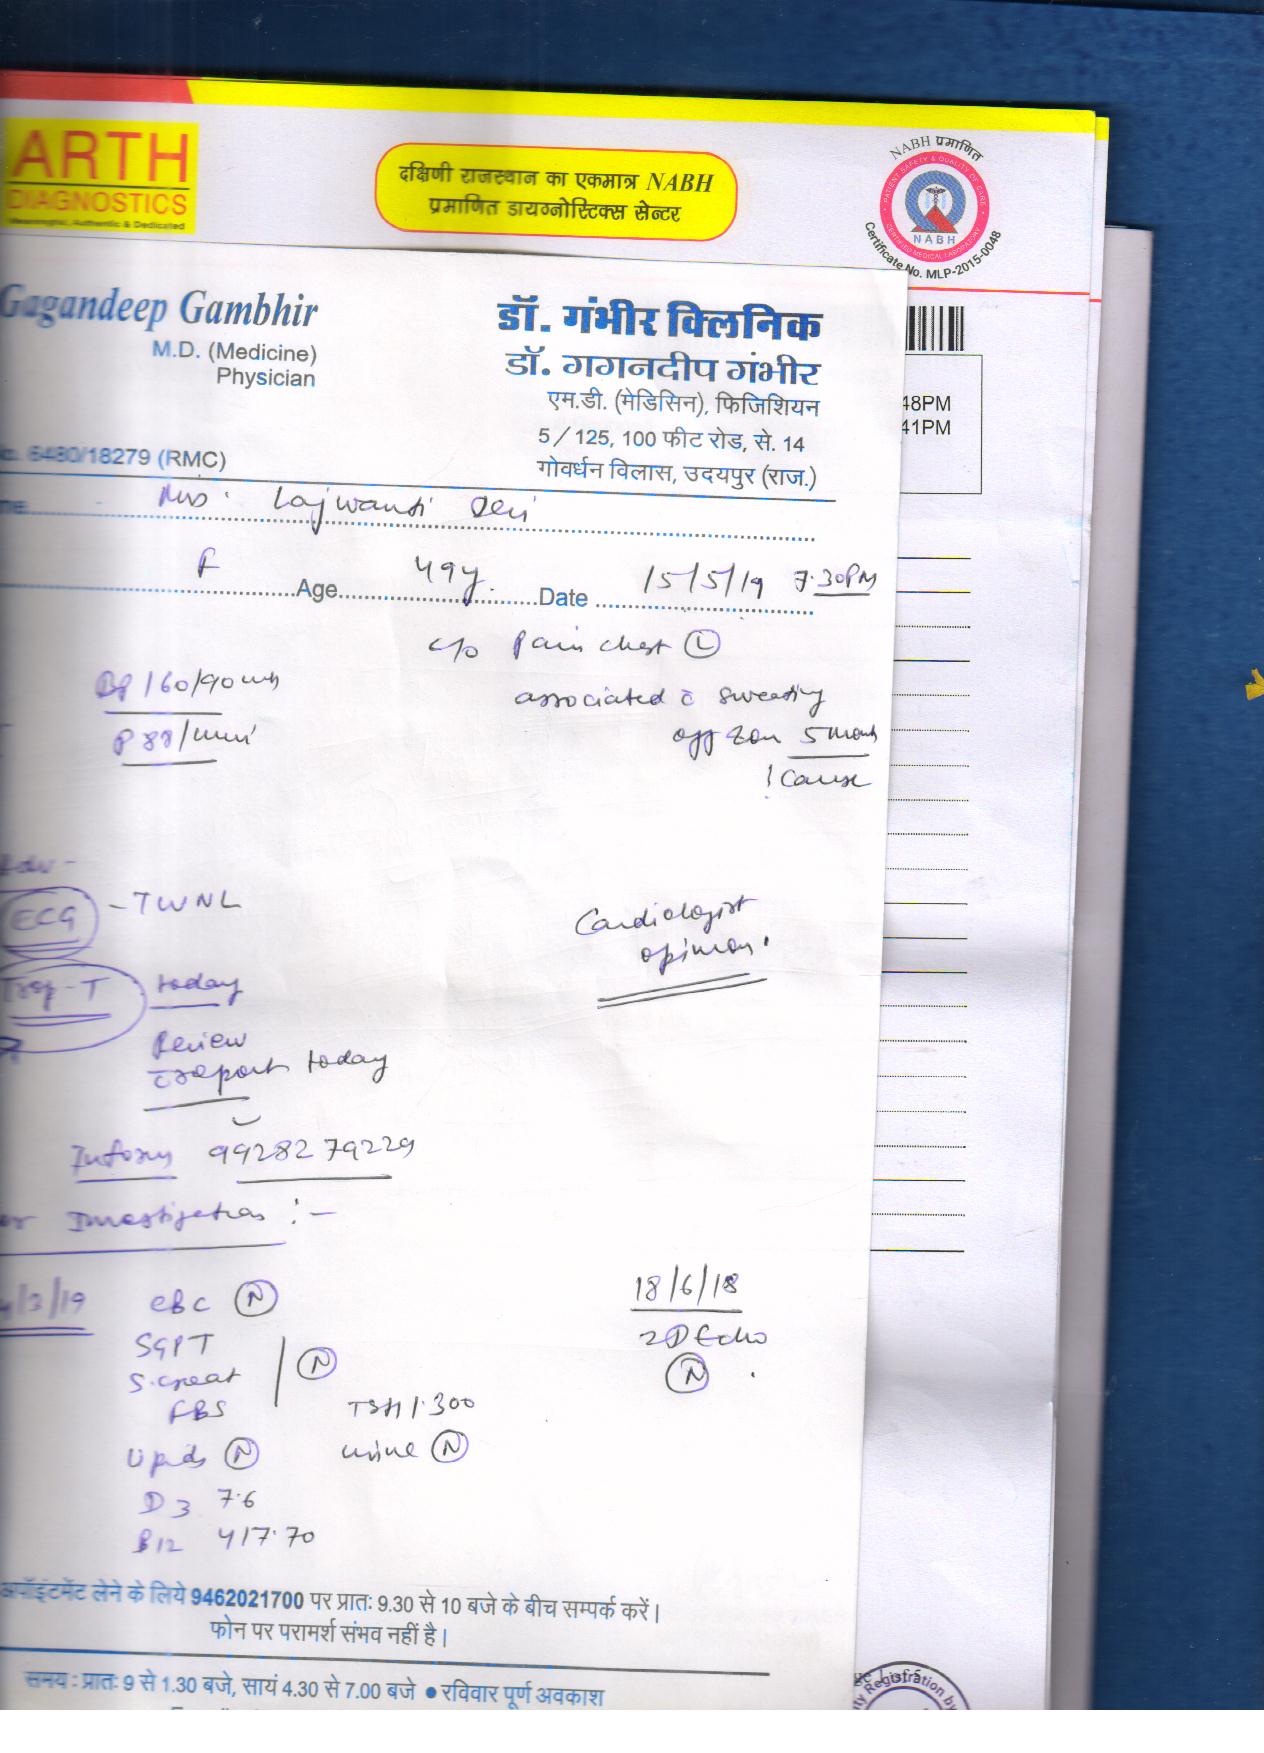 ARTH
DIAGNOSTICS
Meaningful, Authentic & Dedicated
दक्षिणी राजस्थान का एकमात्र NABH
प्रमाणित डायग्नोस्टिक्स सेन्टर
NABH प्रमाणित
PATIENT SAFETY & QUALITY OF CARE
NABH
CERTIFIED MEDICAL LABORATORY
Certificate No. MLP-2015-0048
48PM
41PM
Gagandeep Gambhir
M.D. (Medicine)
Physician
6480/18279 (RMC)
डॉ. गंभीर क्लिनिक
डॉ. गगनदीप गंभीर
एम.डी. (मेडिसिन), फिजिशियन
5/125, 100 फीट रोड, से. 14
गोवर्धन विलास, उदयपुर (राज.)
Mrs. Lajwanti Devi
F Age 49y. Date 15/5/19 7.30PM
c/o Pain chest (L)
associated c̄ sweating
off & on 5 month
! Cause
BP 160/90
P 88/min
Adv -
ECG - TWNL
Trop-T today
Review
c̄ report today
Cardiologist
opinion.
Inform 99282 79229
Investigation :-
/3/19
CBC (N)
SGPT
S.creat (N)
FBS
TSH 1.300
Lipids (N)
urine (N)
D3 7.6
B12 417.70
18/6/18
2D Echo
(N)
अपॉइंटमेंट लेने के लिये 9462021700 पर प्रातः 9.30 से 10 बजे के बीच सम्पर्क करें।
फोन पर परामर्श संभव नहीं है।
समय : प्रातः 9 से 1.30 बजे, सायं 4.30 से 7.00 बजे ● रविवार पूर्ण अवकाश
Registration by